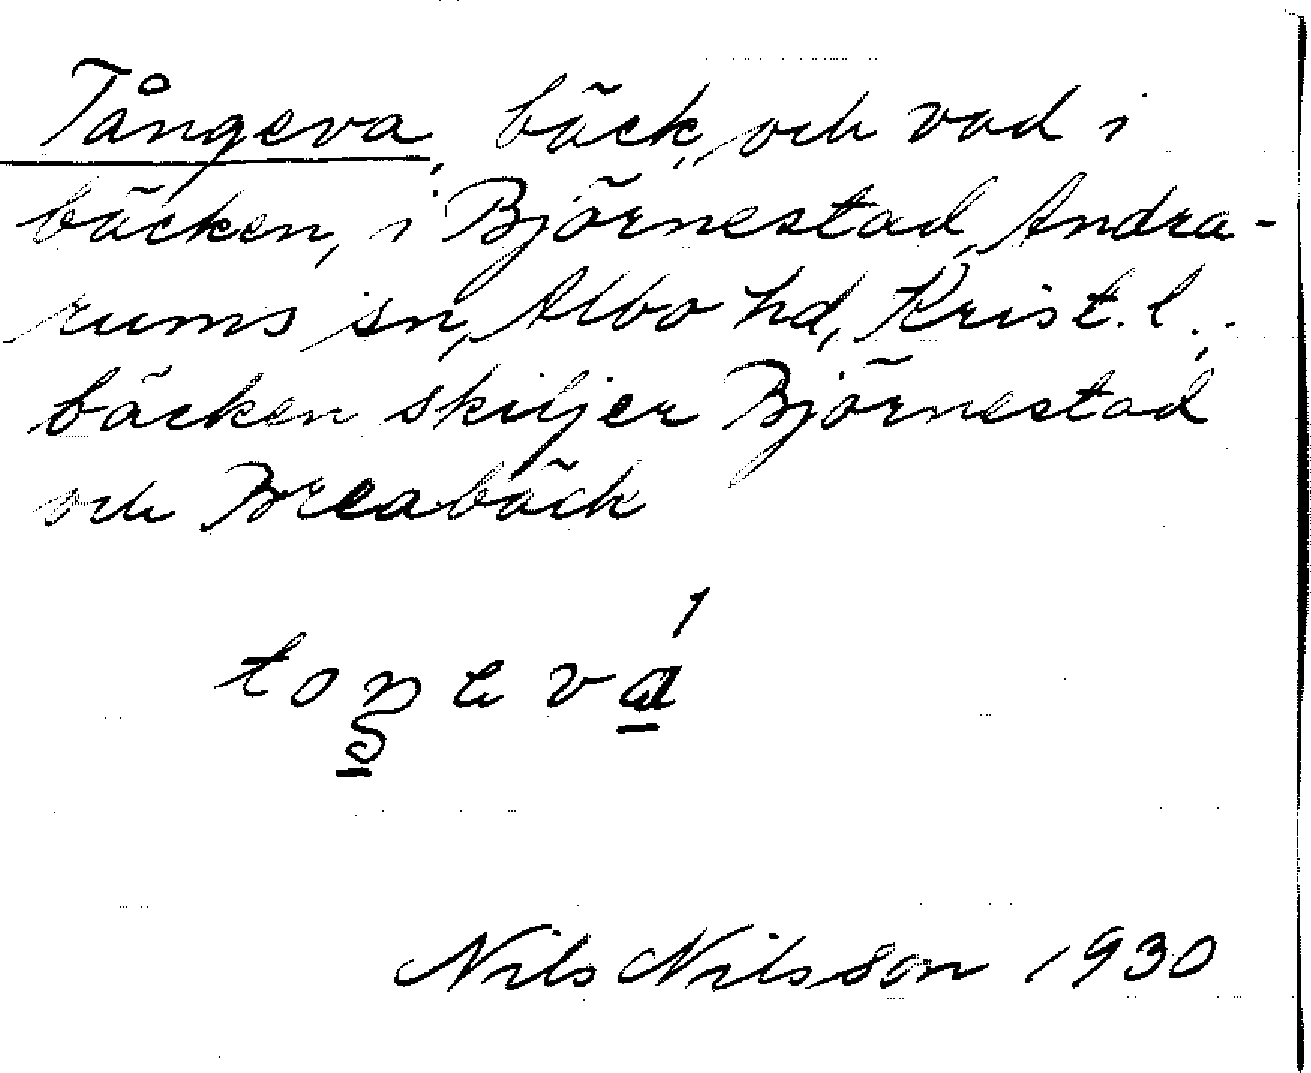 Tångeva, bäck, och vad i
bäcken, i Björnestad, Andra-
rums sn, Albo hd, Krist. l.;
bäcken skiljer Björnestad
och Breabäck
Nils Nilsson 1930